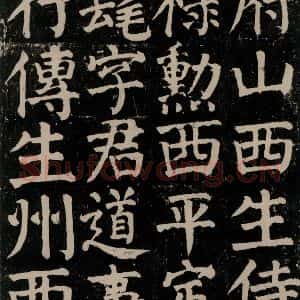 府山西生侍
祿勳西平定
髦字君道事
行傳生州西
shufawang.cn